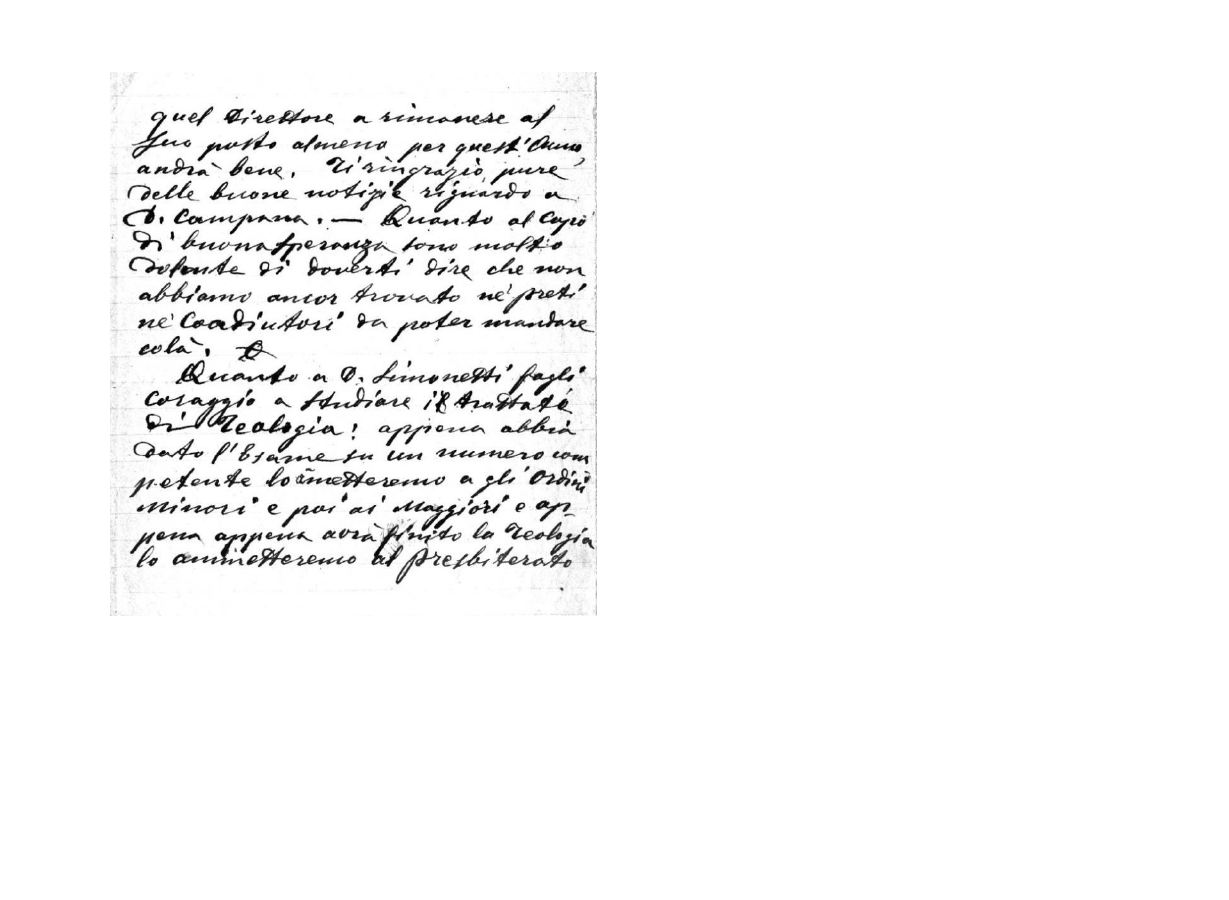 quel Direttore a rimanere al
suo posto almeno per quest'Anno,
andrà bene. Ti ringrazio pure
delle buone notizie riguardo a
D. Campana. — Quanto al Capo
di buona speranza sono molto
dolente di doverti dire che non
abbiamo ancor trovato nè preti
nè Coadiutori da poter mandare
colà.
Quanto a D. Simonetti fagli
coraggio a studiare il trattato
di Teologia: appena abbia
dato l'Esame su un numero com
petente lo metteremo a gli Ordini
Minori e poi ai Maggiori e ap-
pena appena avrà finito la Teologia
lo ammetteremo al Presbiterato